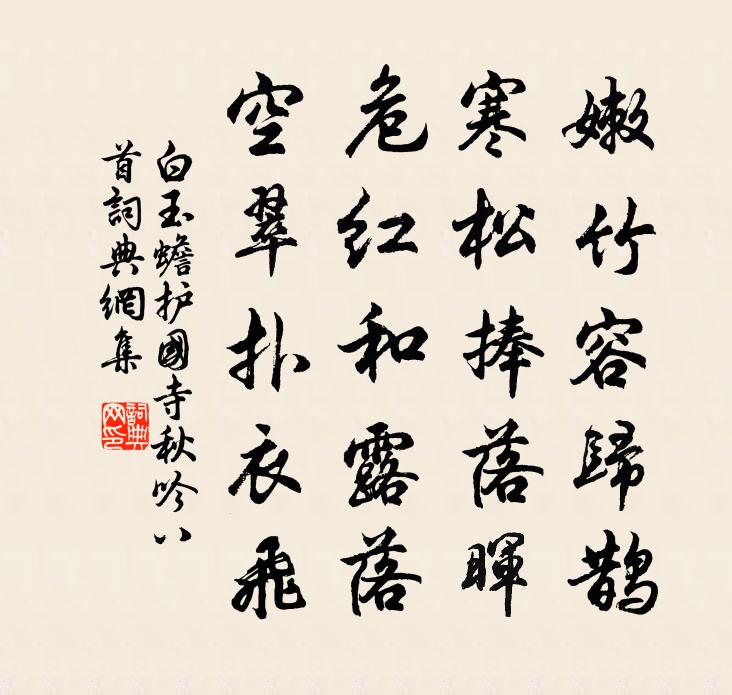 嫩竹容歸鹊
寒松捧落暉
危红和露落
空翠扑衣飛
白玉蟾护國寺秋吟八
首詞典網集
詞典网印